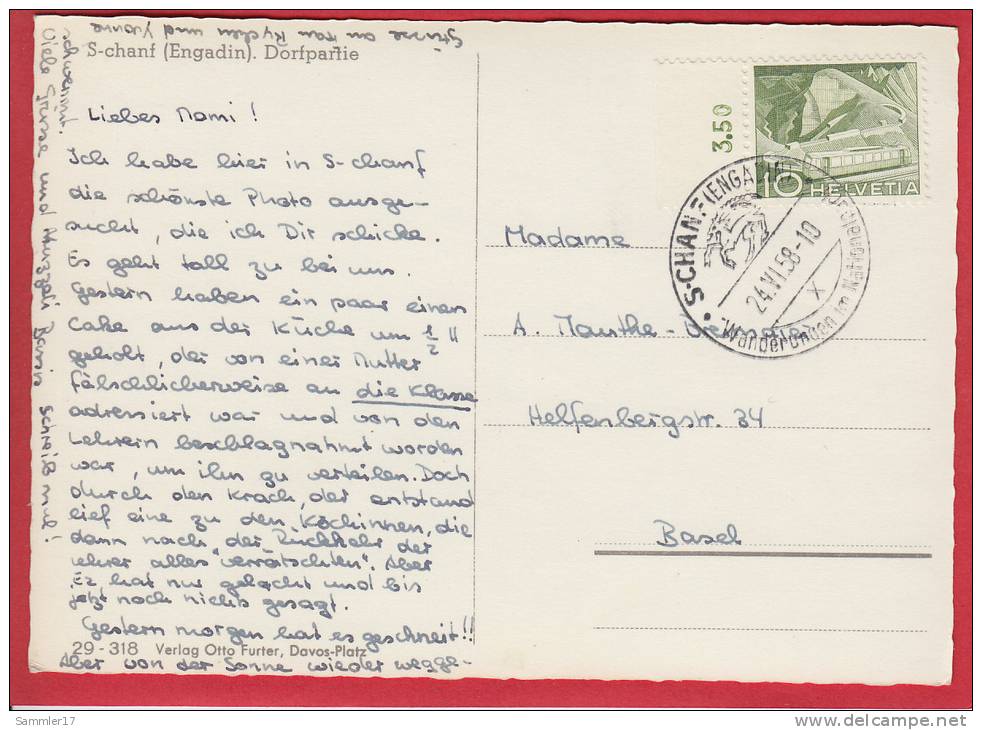 S-chanf (Engadin). Dorfpartie
Liebes Mami!
Ich habe hier in S-chanf
die schönste Photo ausge-
sucht, die ich Dir schicke.
Es geht toll zu bei uns.
Gestern haben ein paar einen
Cake aus der Küche um ½ 11
geholt, der von einer Mutter
fälschlicherweise an die Klasse
adressiert war und von den
Lehrern beschlagnahmt worden
war, um ihn zu verteilen. Doch
durch den Krach, der entstand
lief eine zu den Köchinnen, die
dann nach der Rückkehr der
Lehrer alles "verrätschten". Aber
Ez hat nur gelacht und bis
jetzt noch nichts gesagt.
Gestern morgen hat es geschneit!!
Aber von der Sonne wieder wegge-
schwemmt.
Viele Grüsse und
schreib mal!
Grüsse an Frau Rychen und Yvonne
29 - 318 Verlag Otto Furter, Davos-Platz
3.50
10 HELVETIA
S-CHANF (ENGADIN)
24.VI.58-10
X
Wanderungen im Nationalpark
Madame
A. Mauthe-
Helfenbergstr. 34
Basel
Sammler17
www.delcampe.net